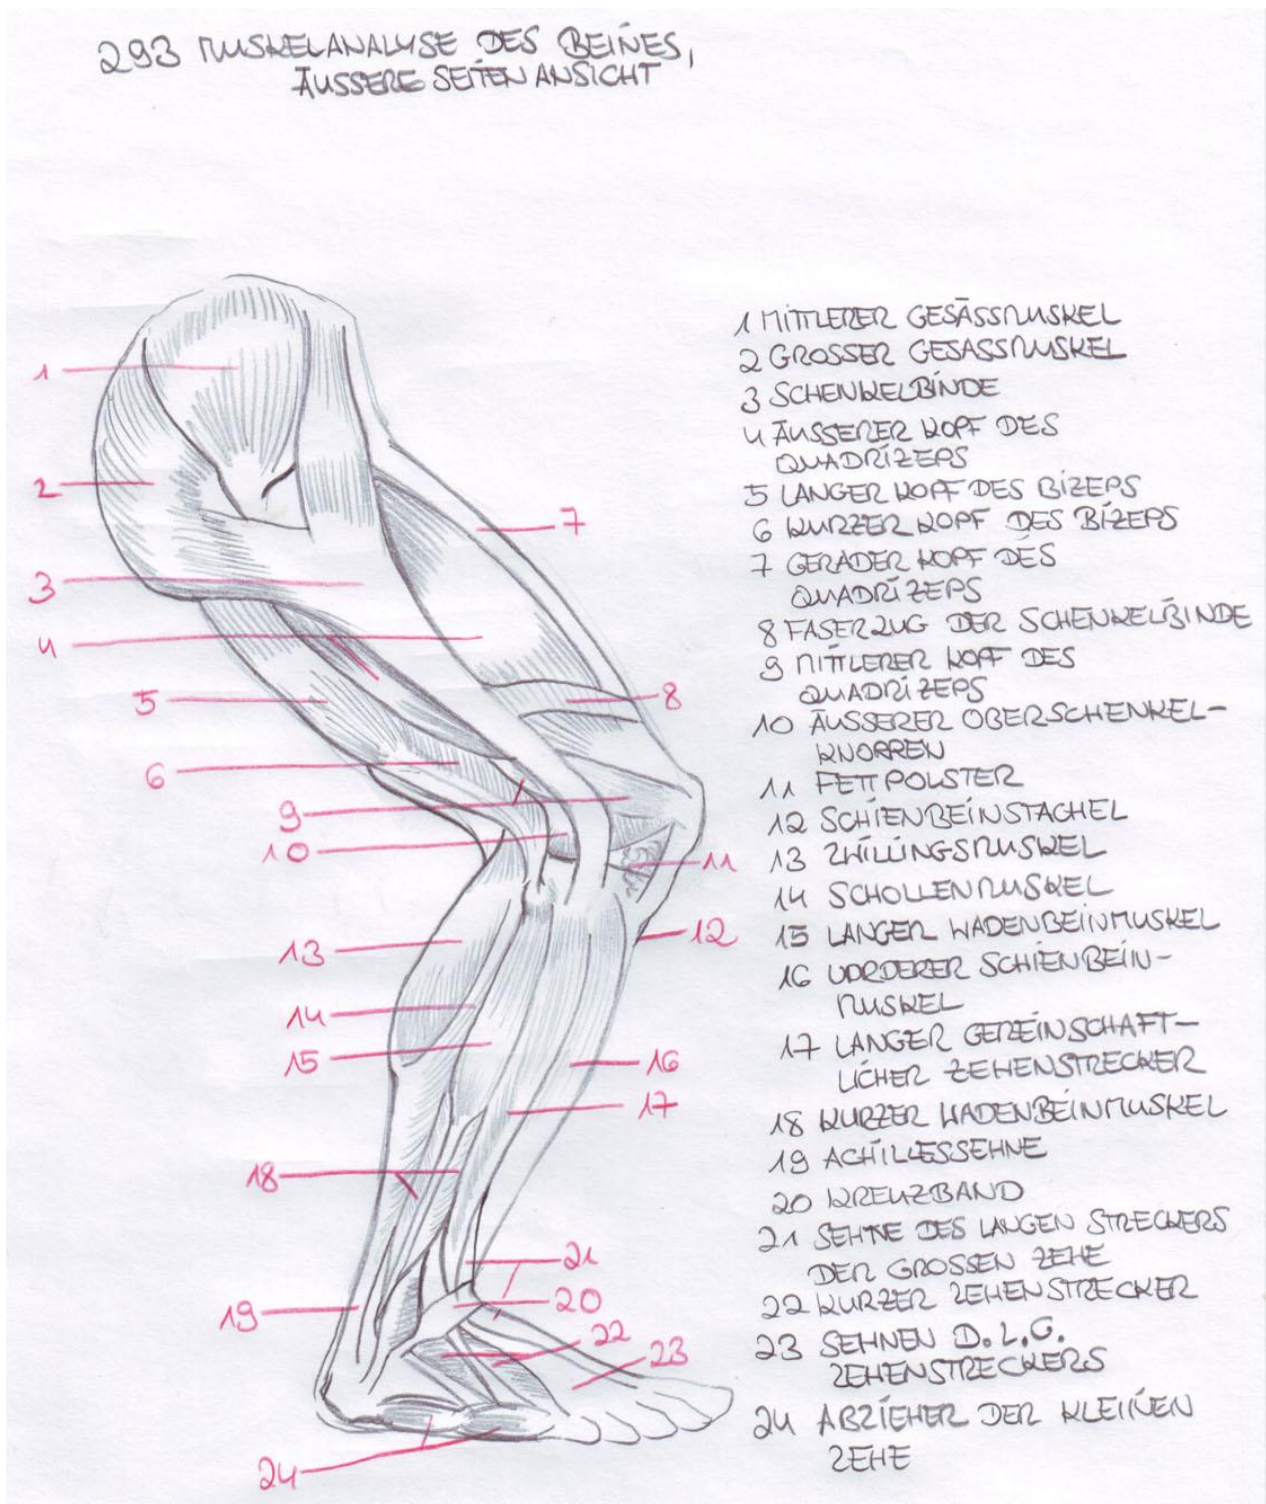 293 MUSKELANALYSE DES BEINES,
ÄUSSERE SEITENANSICHT
1 MITTLERER GESÄSSMUSKEL
2 GROSSER GESÄSSMUSKEL
3 SCHENKELBINDE
4 ÄUSSERER KOPF DES
QUADRIZEPS
5 LANGER KOPF DES BIZEPS
6 KURZER KOPF DES BIZEPS
7 GERADER KOPF DES
QUADRIZEPS
8 FASERZUG DER SCHENKELBINDE
9 MITTLERER KOPF DES
QUADRIZEPS
10 ÄUSSERER OBERSCHENKEL-
KNORREN
11 FETTPOLSTER
12 SCHIENBEINSTACHEL
13 ZWILLINGSMUSKEL
14 SCHOLLENMUSKEL
15 LANGER WADENBEINMUSKEL
16 VORDERER SCHIENBEIN-
MUSKEL
17 LANGER GEMEINSCHAFT-
LICHER ZEHENSTRECKER
18 KURZER WADENBEINMUSKEL
19 ACHILLESSEHNE
20 KREUZBAND
21 SEHNE DES LANGEN STRECKERS
DER GROSSEN ZEHE
22 KURZER ZEHENSTRECKER
23 SEHNEN D. L. G.
ZEHENSTRECKERS
24 ABZIEHER DER KLEINEN
ZEHE
1
2
7
3
4
5
8
6
9
10
11
12
13
14
15
16
17
18
21
20
19
22
23
24